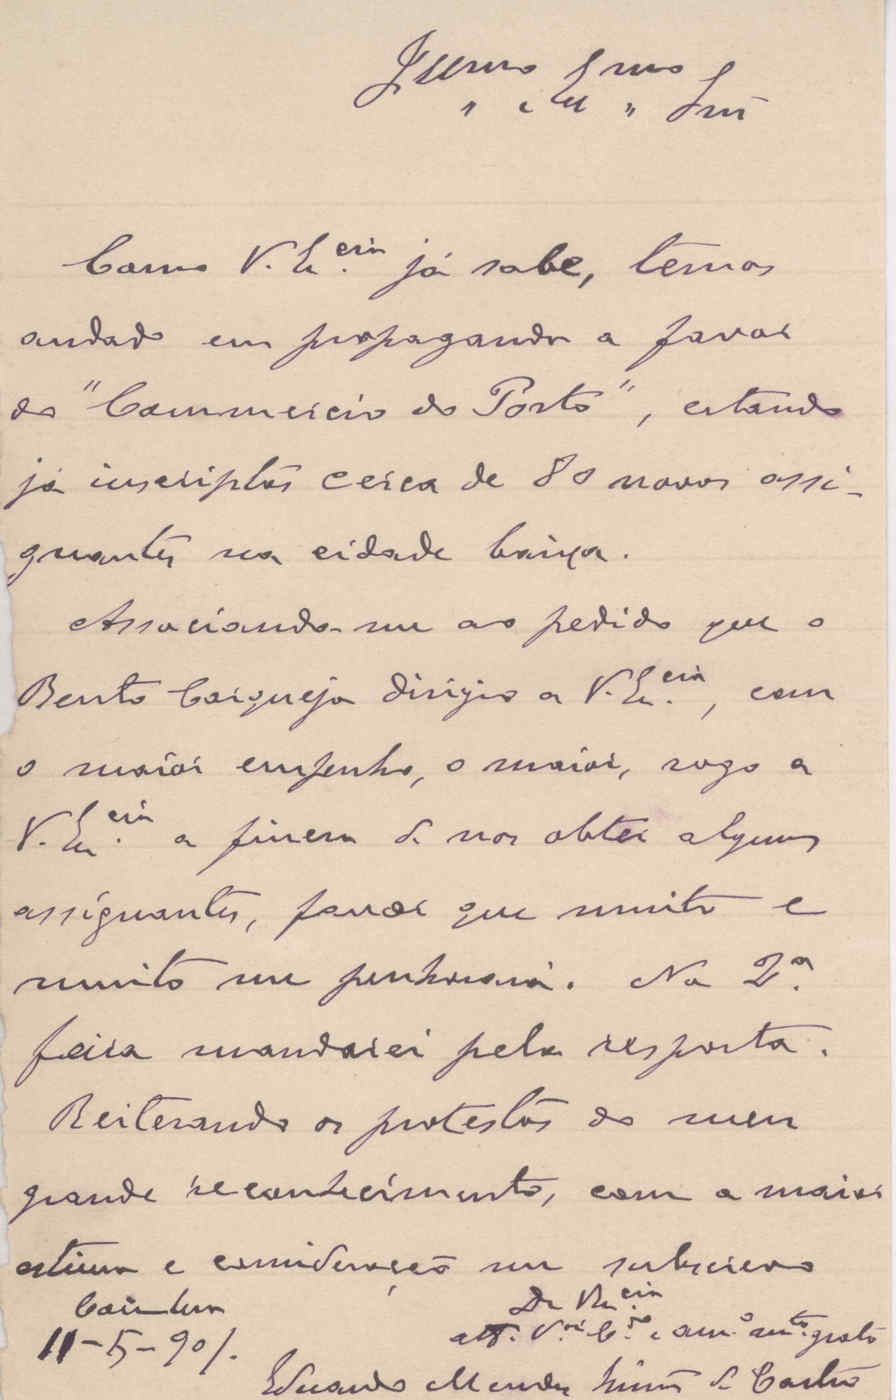 Illmo Exmo Snr
" e Ex " Snr
Como V. Ex.cia já sabe, temos
andado em propaganda a favor
do "Commercio do Porto", estando
já inscriptos cerca de 80 novos assi-
gnantes na cidade baixa.
Associando-me ao pedido que o
Bento Carqueja dirigio a V. Ex.cia, com
o maior empenho, o maior, rogo a
V. Ex.cia a fineza de nos obter alguns
assignantes, favor que muito e
muito me penhorará. Na 2.ª
feira mandarei pela resposta.
Reiterando os protestos do meu
grande reconhecimento, com a maior
estima e consideração me subscrevo
De V. Ex.cia
Coimbra
11-5-901.
att. V.or C.do e am.o m.to grato
Eduardo Mendes Simões de Castro